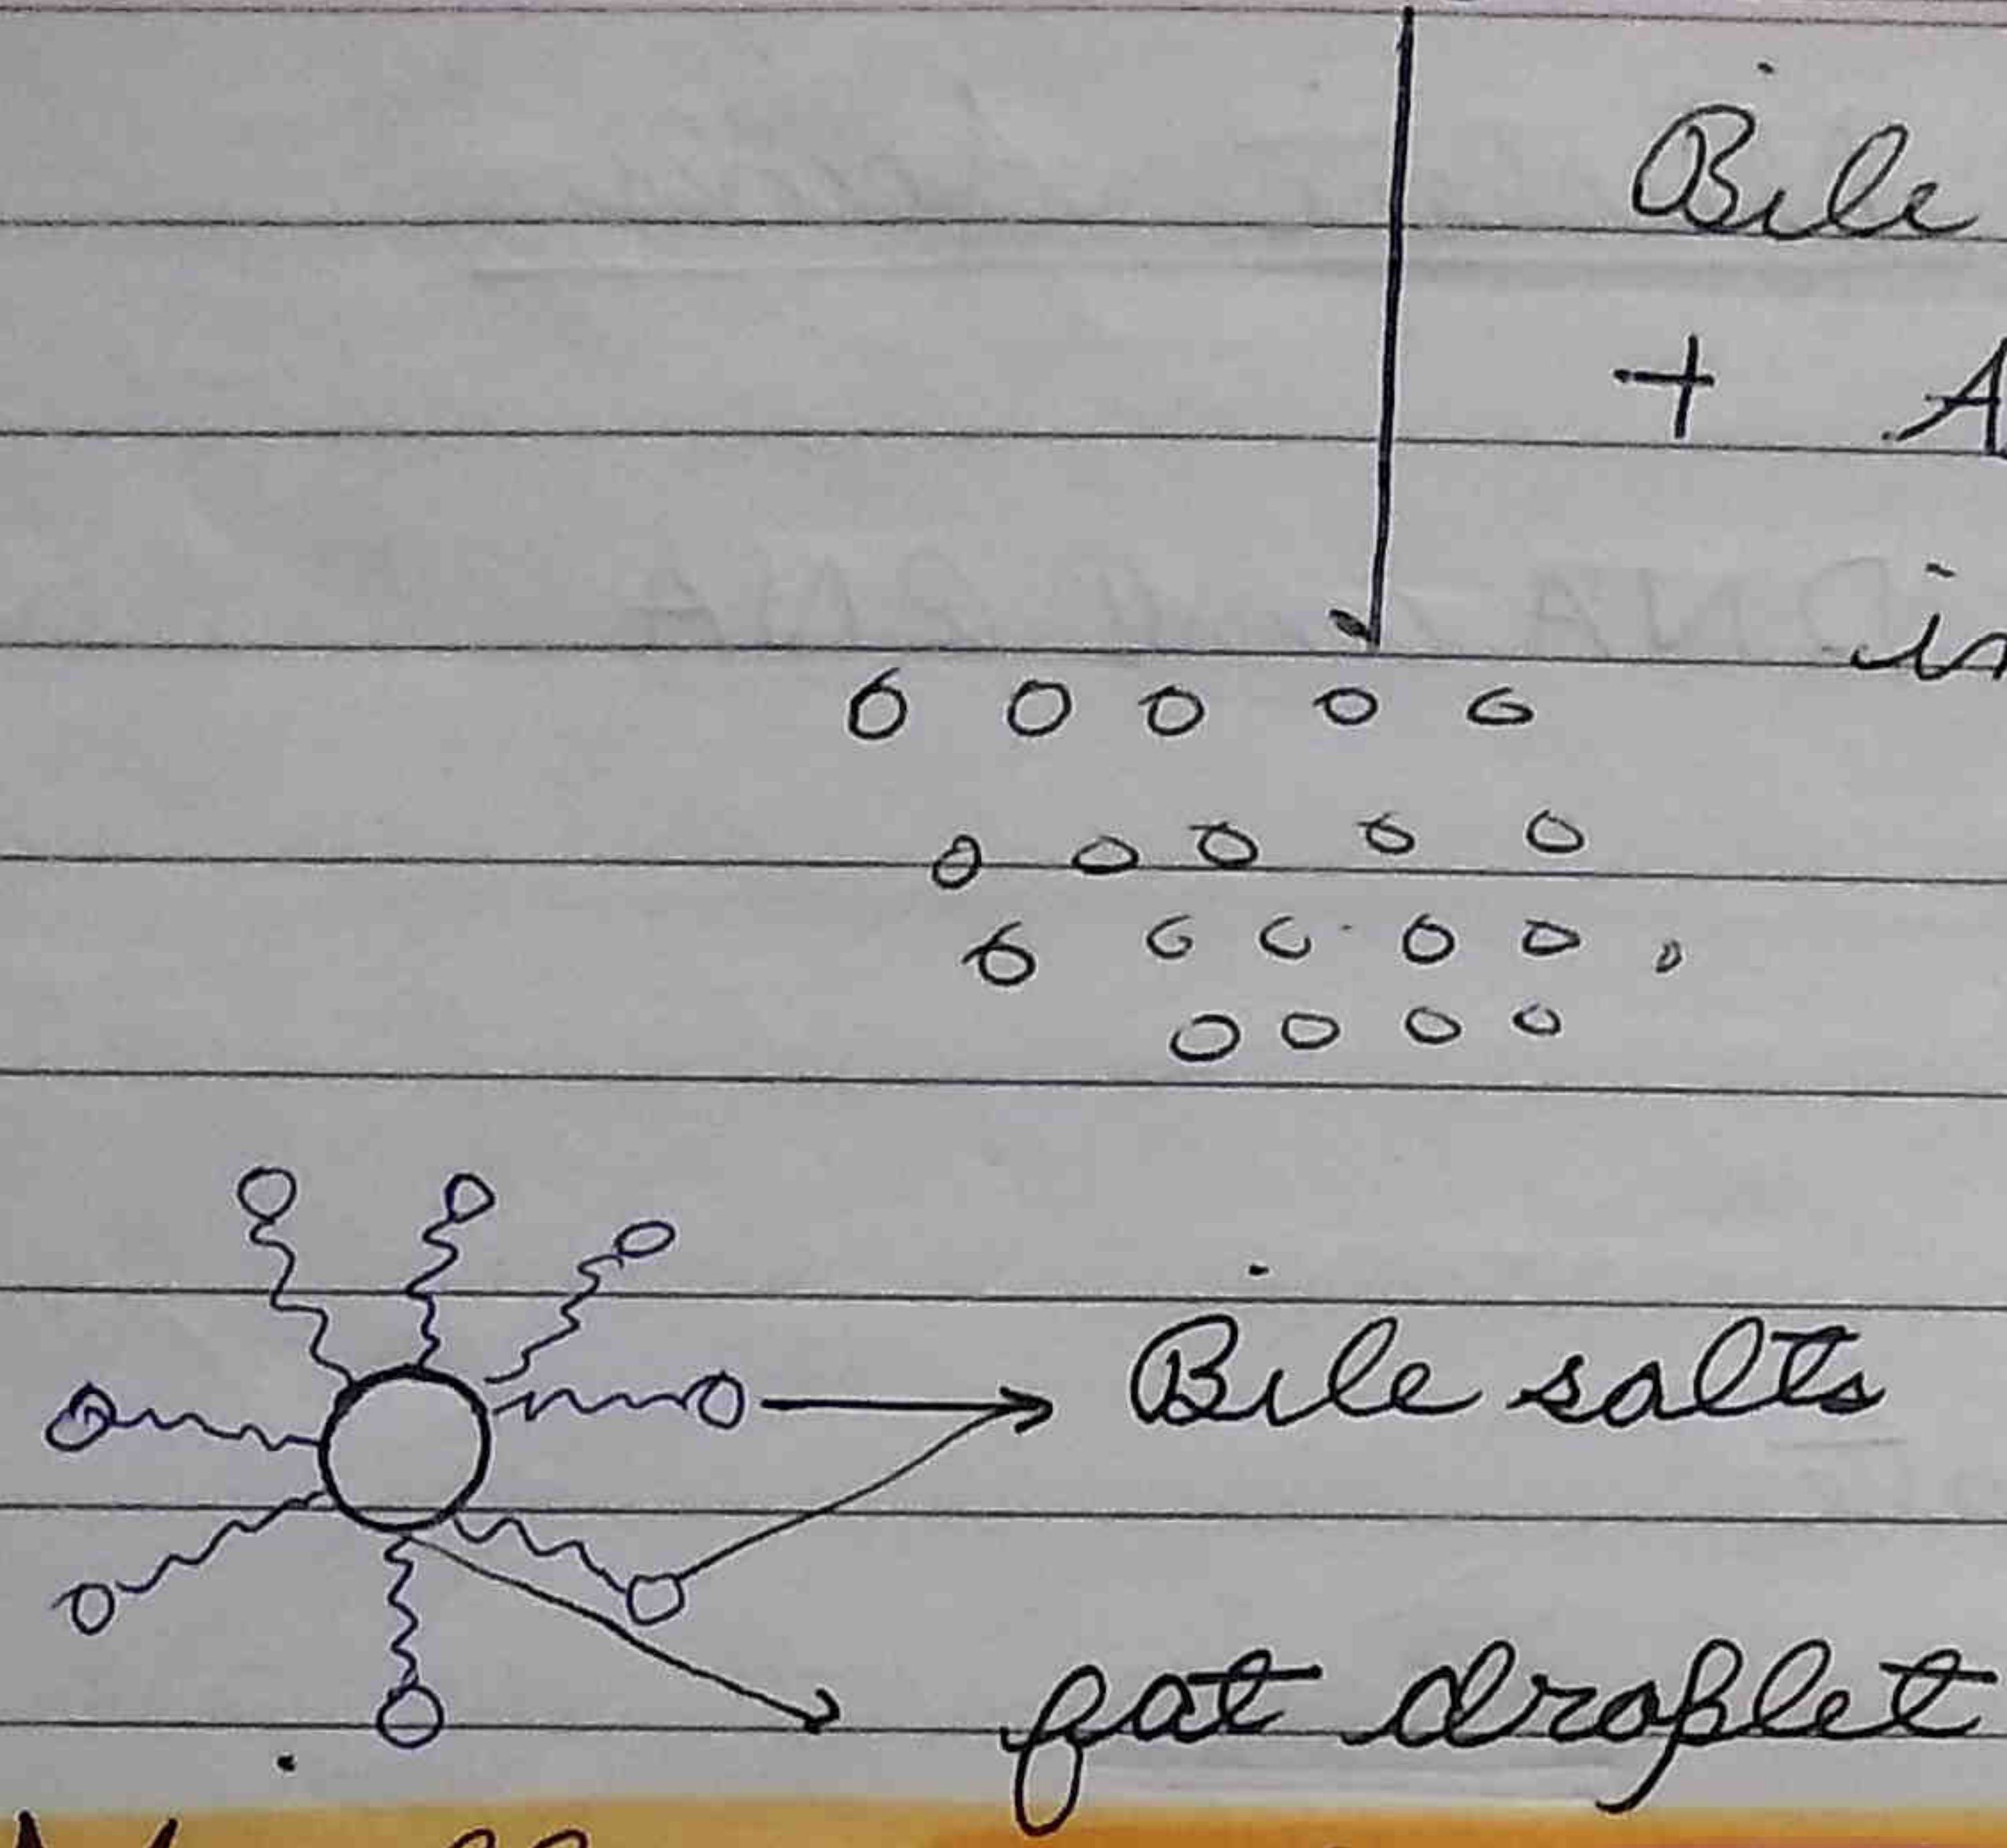 Bile
+ A
in
Bile salts
fat droplet